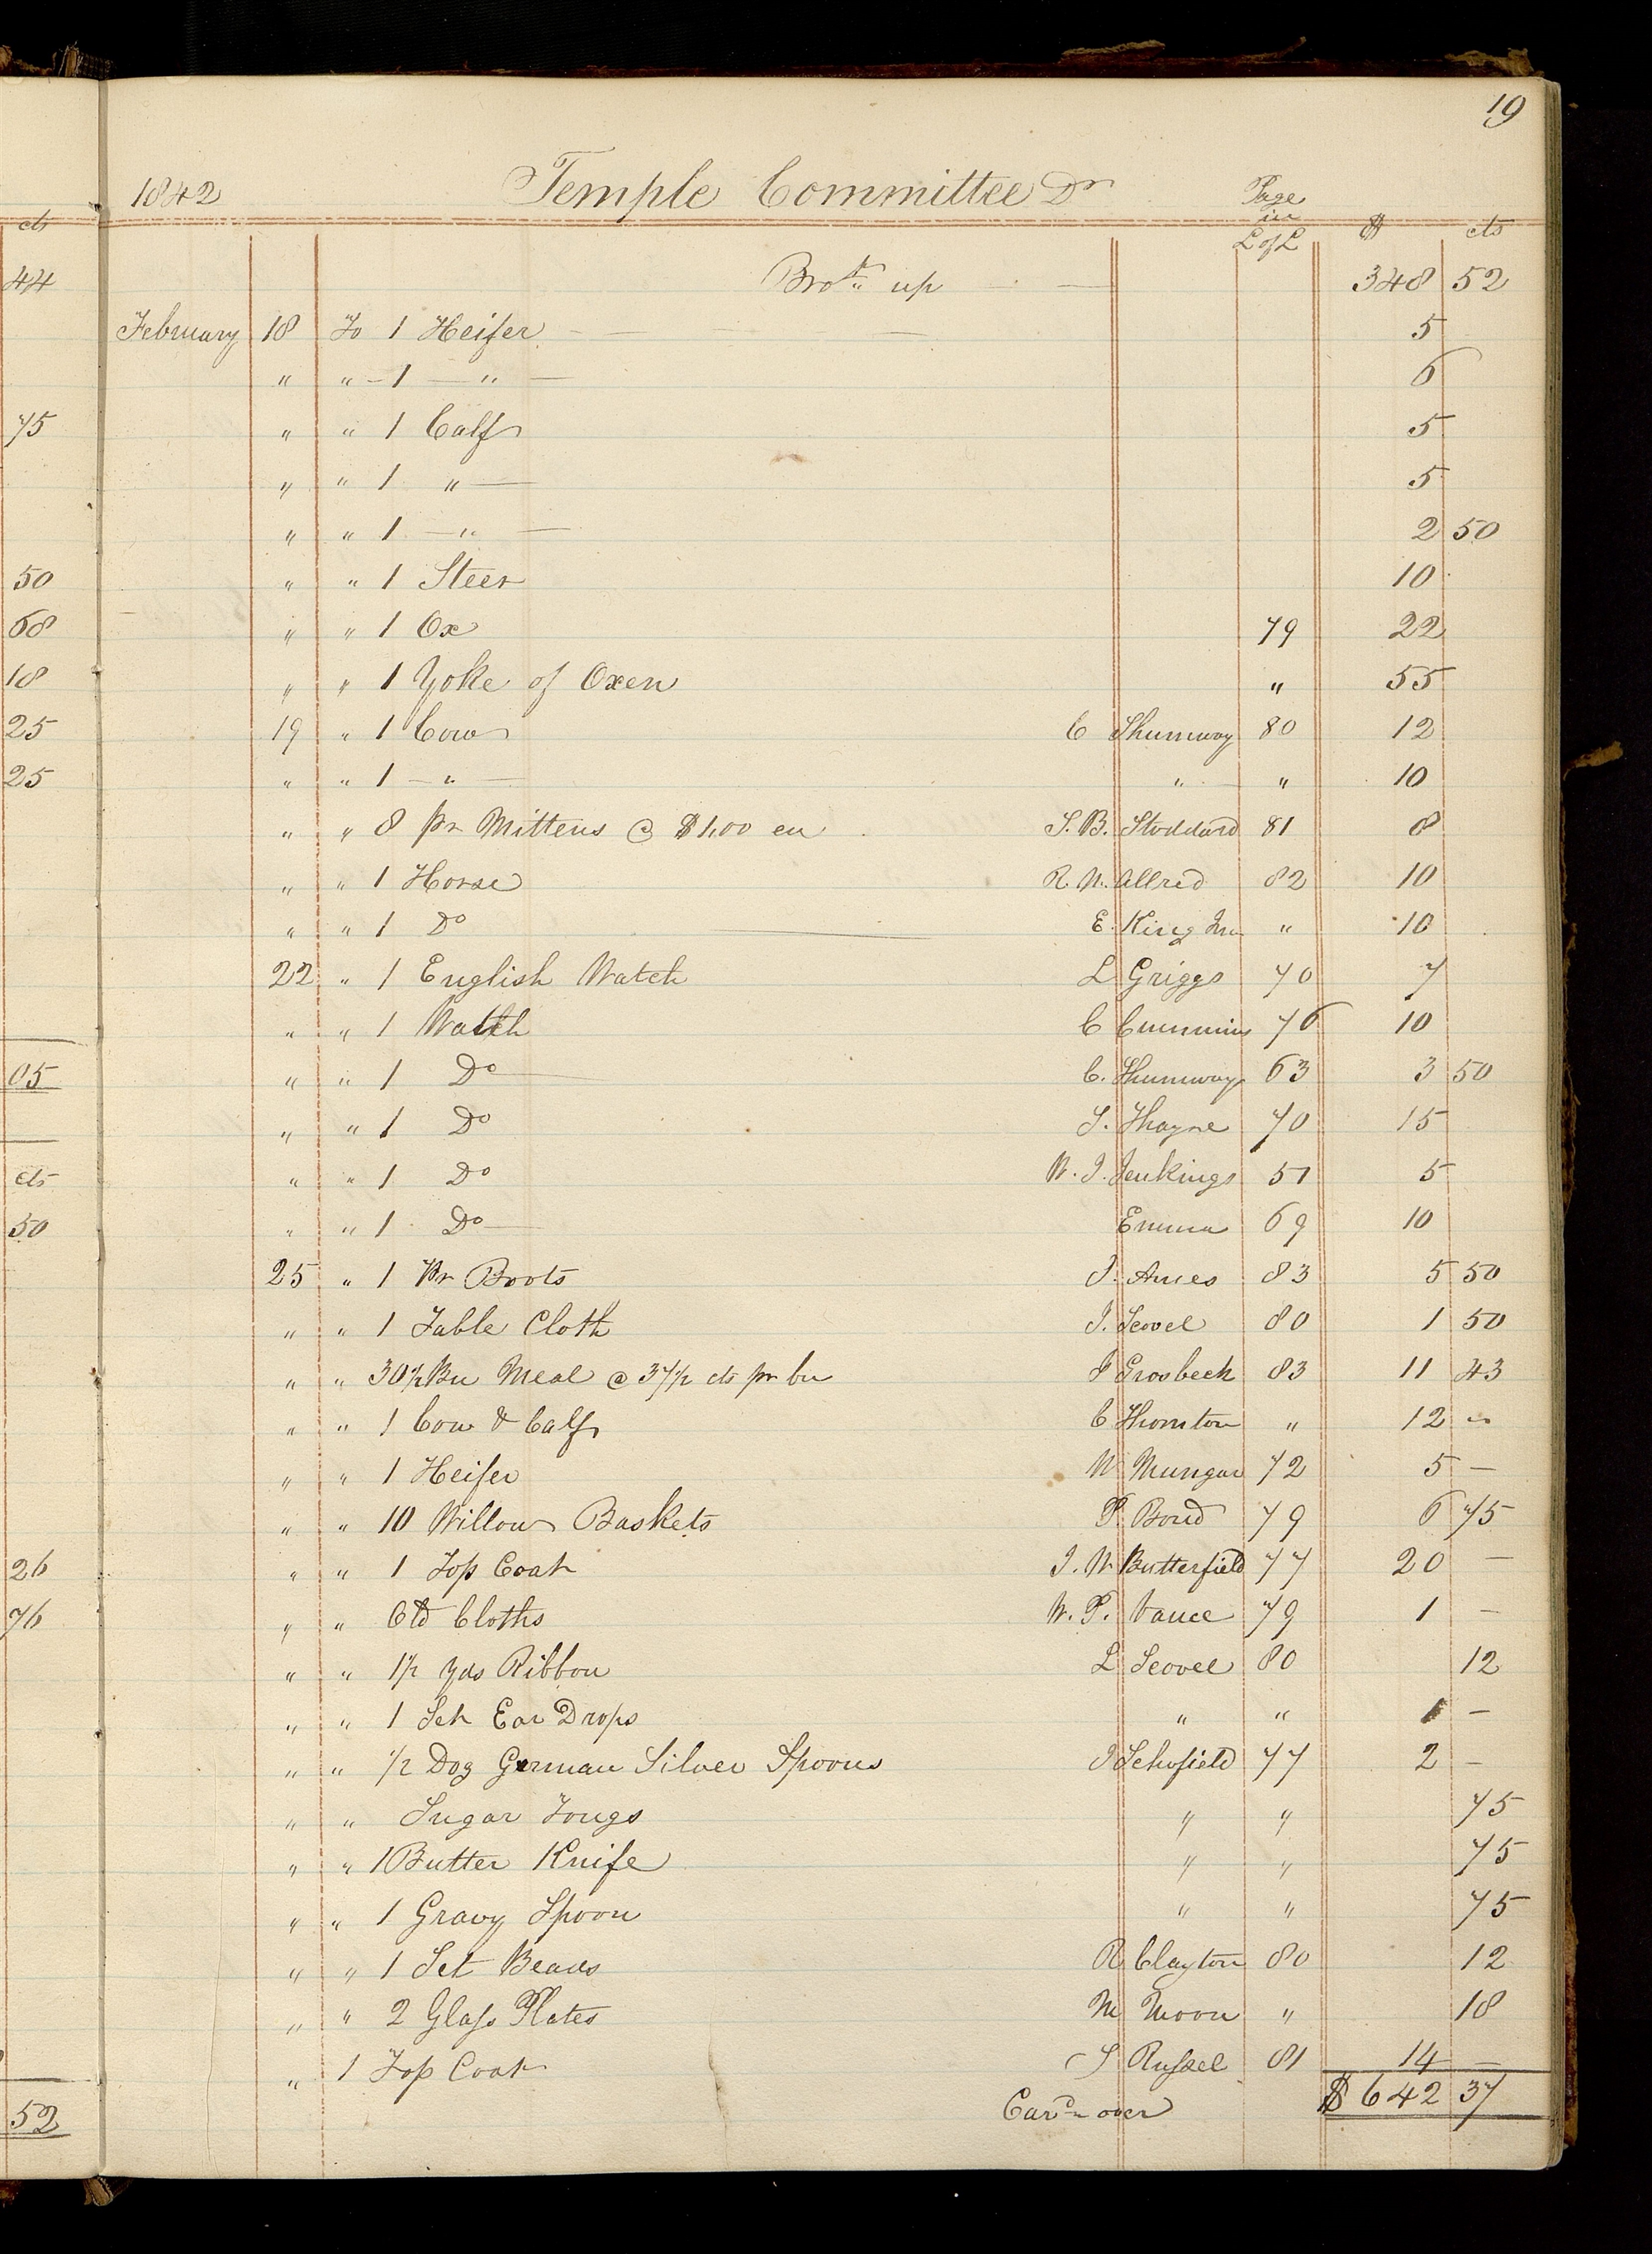 19
1842 Temple Committee Dr Page in L of L $ cts
Brot. up 348 52
February 18 To 1 Heifer 5
" " 1 " 6
" " 1 Calf 5
" " 1 " 5
" " 1 " 2 50
" " 1 Steer 10
" " 1 Ox 79 22
" " 1 Yoke of Oxen " 55
19 " 1 Cow C Shumway 80 12
" " 1 " " " 10
" " 8 pr Mittens @ $1,00 ea S. B. Stoddard 81 8
" " 1 Horse R. W. Allred 82 10
" " 1 Do E. King Jnr " 10
22 " 1 English Watch L Griggs 70 7
" " 1 Watch C Cummins 76 10
" " 1 Do C. Shumway 63 3 50
" " 1 Do S. Thayne 70 15
" " 1 Do W. J. Jenkings 57 5
" " 1 Do Emma 69 10
25 " 1 Pr Boots I. Ames 83 5 50
" " 1 Table Cloth J. Scovel 80 1 50
" " 30 1/2 Bu Meal @ 37 1/2 cts pr bu J Grosbeck 83 11 43
" " 1 Cow & Calf C Thornton " 12 -
" " 1 Heifer W Mungar 72 5 -
" " 10 Willow Baskets P. Boud 79 6 75
" " 1 Top Coat J. W Butterfield 77 20 -
" " Old Cloths W. P. Vance 79 1 -
" " 1 1/2 yds Ribbon L Scovel 80 12
" " 1 Set Ear Drops " " 1 -
" " 1/2 Doz German Silver Spoons J Schofield 77 2 -
" " Sugar Tongs " " 75
" " 1 Butter Knife " " 75
" " 1 Gravy Spoon " " 75
" " 1 Set Beads R Clayton 80 12
" " 2 Glass Plates M Moon " 18
" 1 Top Coat S Russel 81 14 -
Card. over $642 37
cts
44
75
50
68
18
25
25
05
cts
50
26
76
52